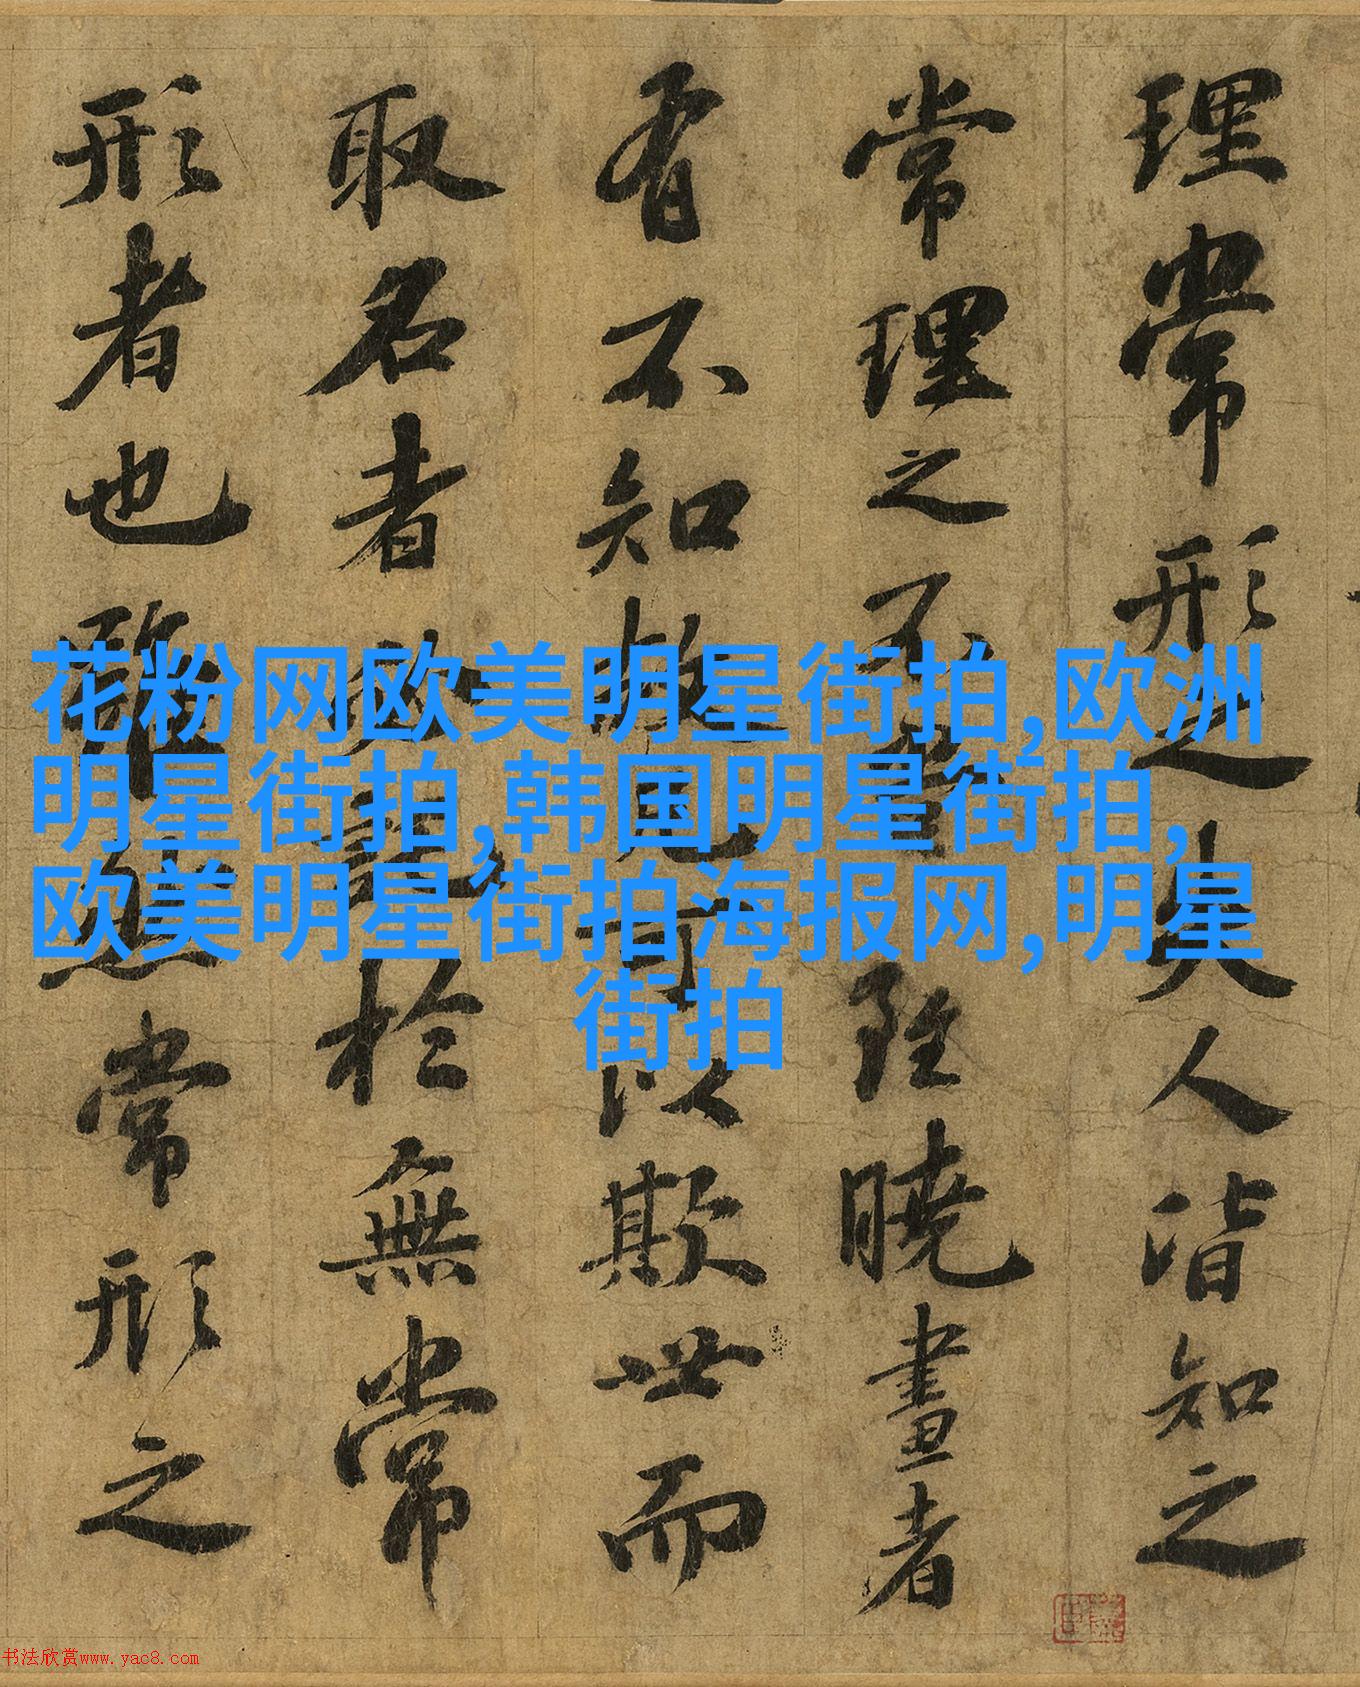 理常形之失人皆知之
常理之不當雖曉畫者
有不知故凡可以欺世而
取名者必託於無常
形者也雖然常形之
花粉网欧美明星街拍,欧洲
明星街拍,韩国明星街拍,
欧美明星街拍海报网,明星
街拍
书法欣赏www.yac8.com